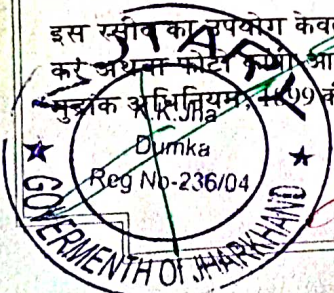 इस रसीद का उपयोग केव
करें अथवा फोटो कॉपी आ
मुद्रांक अधिनियम, 1899 क
K.K.Jha
Dumka
Reg No-236/04
GOVERMENTH OF JHARKHAND